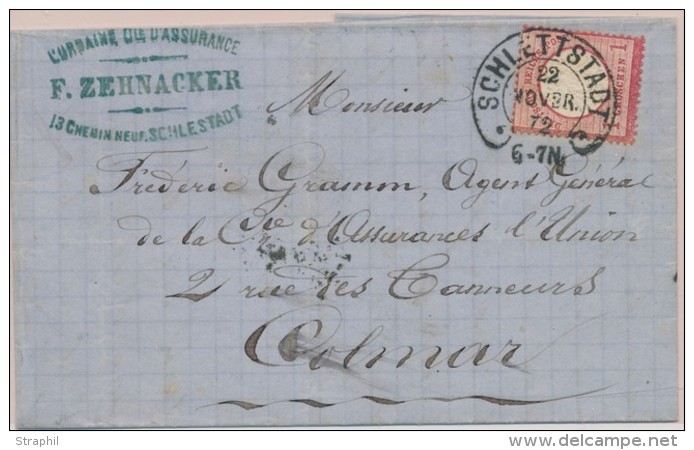 L'URBAINE, CIE D'ASSURANCE
F. ZEHNACKER
13 CHEMIN NEUF, SCHLESTADT
SCHLETTSTADT
22
NOVBR.
72
6-7N.
1 GROSCHEN 1
Monsieur
Fréderic Gramm, Agent Général
de la Cie d'Assurances l'Union
2 rue des Tanneurs
Colmar
Straphil
www.delcampe.net